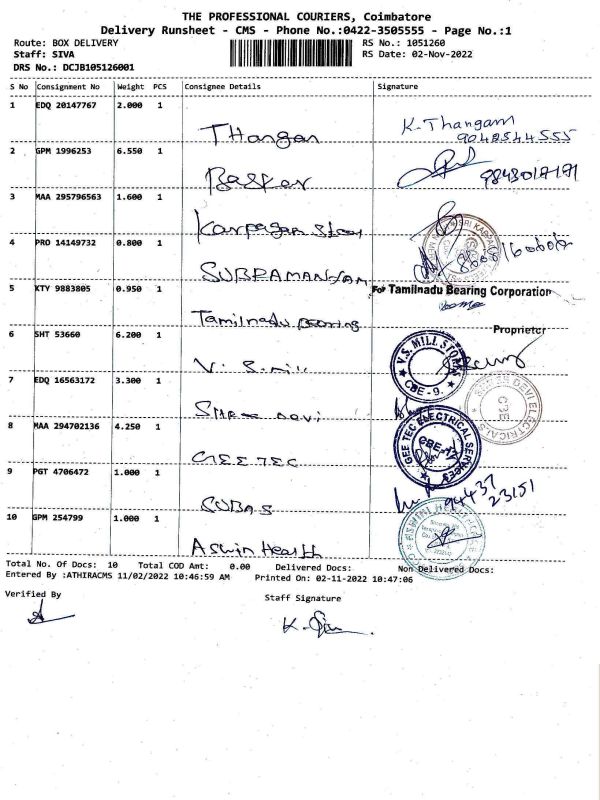 THE PROFESSIONAL COURIERS, Coimbatore
Delivery Runsheet - CMS - Phone No.:0422-3505555 - Page No.:1
Route: BOX DELIVERY
RS No.: 1051260
Staff: SIVA
RS Date: 02-Nov-2022
DRS No.: DCJB105126001
S No Consignment No Weight PCS Consignee Details Signature
1 EDQ 20147767 2.000 1
THangam K.Thangam
9048544555
2 GPM 1996253 6.550 1
Baskar
3 MAA 295796563 1.600 1
Karpagam
4 PRO 14149732 0.800 1
SUBRAMANYAM
5 KTY 9883805 0.950 1 For Tamilnadu Bearing Corporation
Tamilnadu Bearing
Proprietor
6 SHT 53660 6.200 1
V. S. mill
V.S. MILL STORES
CBE - 9.
7 EDQ 16563172 3.300 1
Shree Devi
DEVI ELECTRICALS
CBE
8 MAA 294702136 4.250 1
GEE TEC
GEE TEC ELECTRICAL SERVICES
CBE-12
9 PGT 4706472 1.000 1
SUBAS
94437
23151
10 GPM 254799 1.000 1
Aswin Health
Total No. Of Docs: 10 Total COD Amt: 0.00 Delivered Docs: Non Delivered Docs:
Entered By :ATHIRACMS 11/02/2022 10:46:59 AM Printed On: 02-11-2022 10:47:06
Verified By
Staff Signature